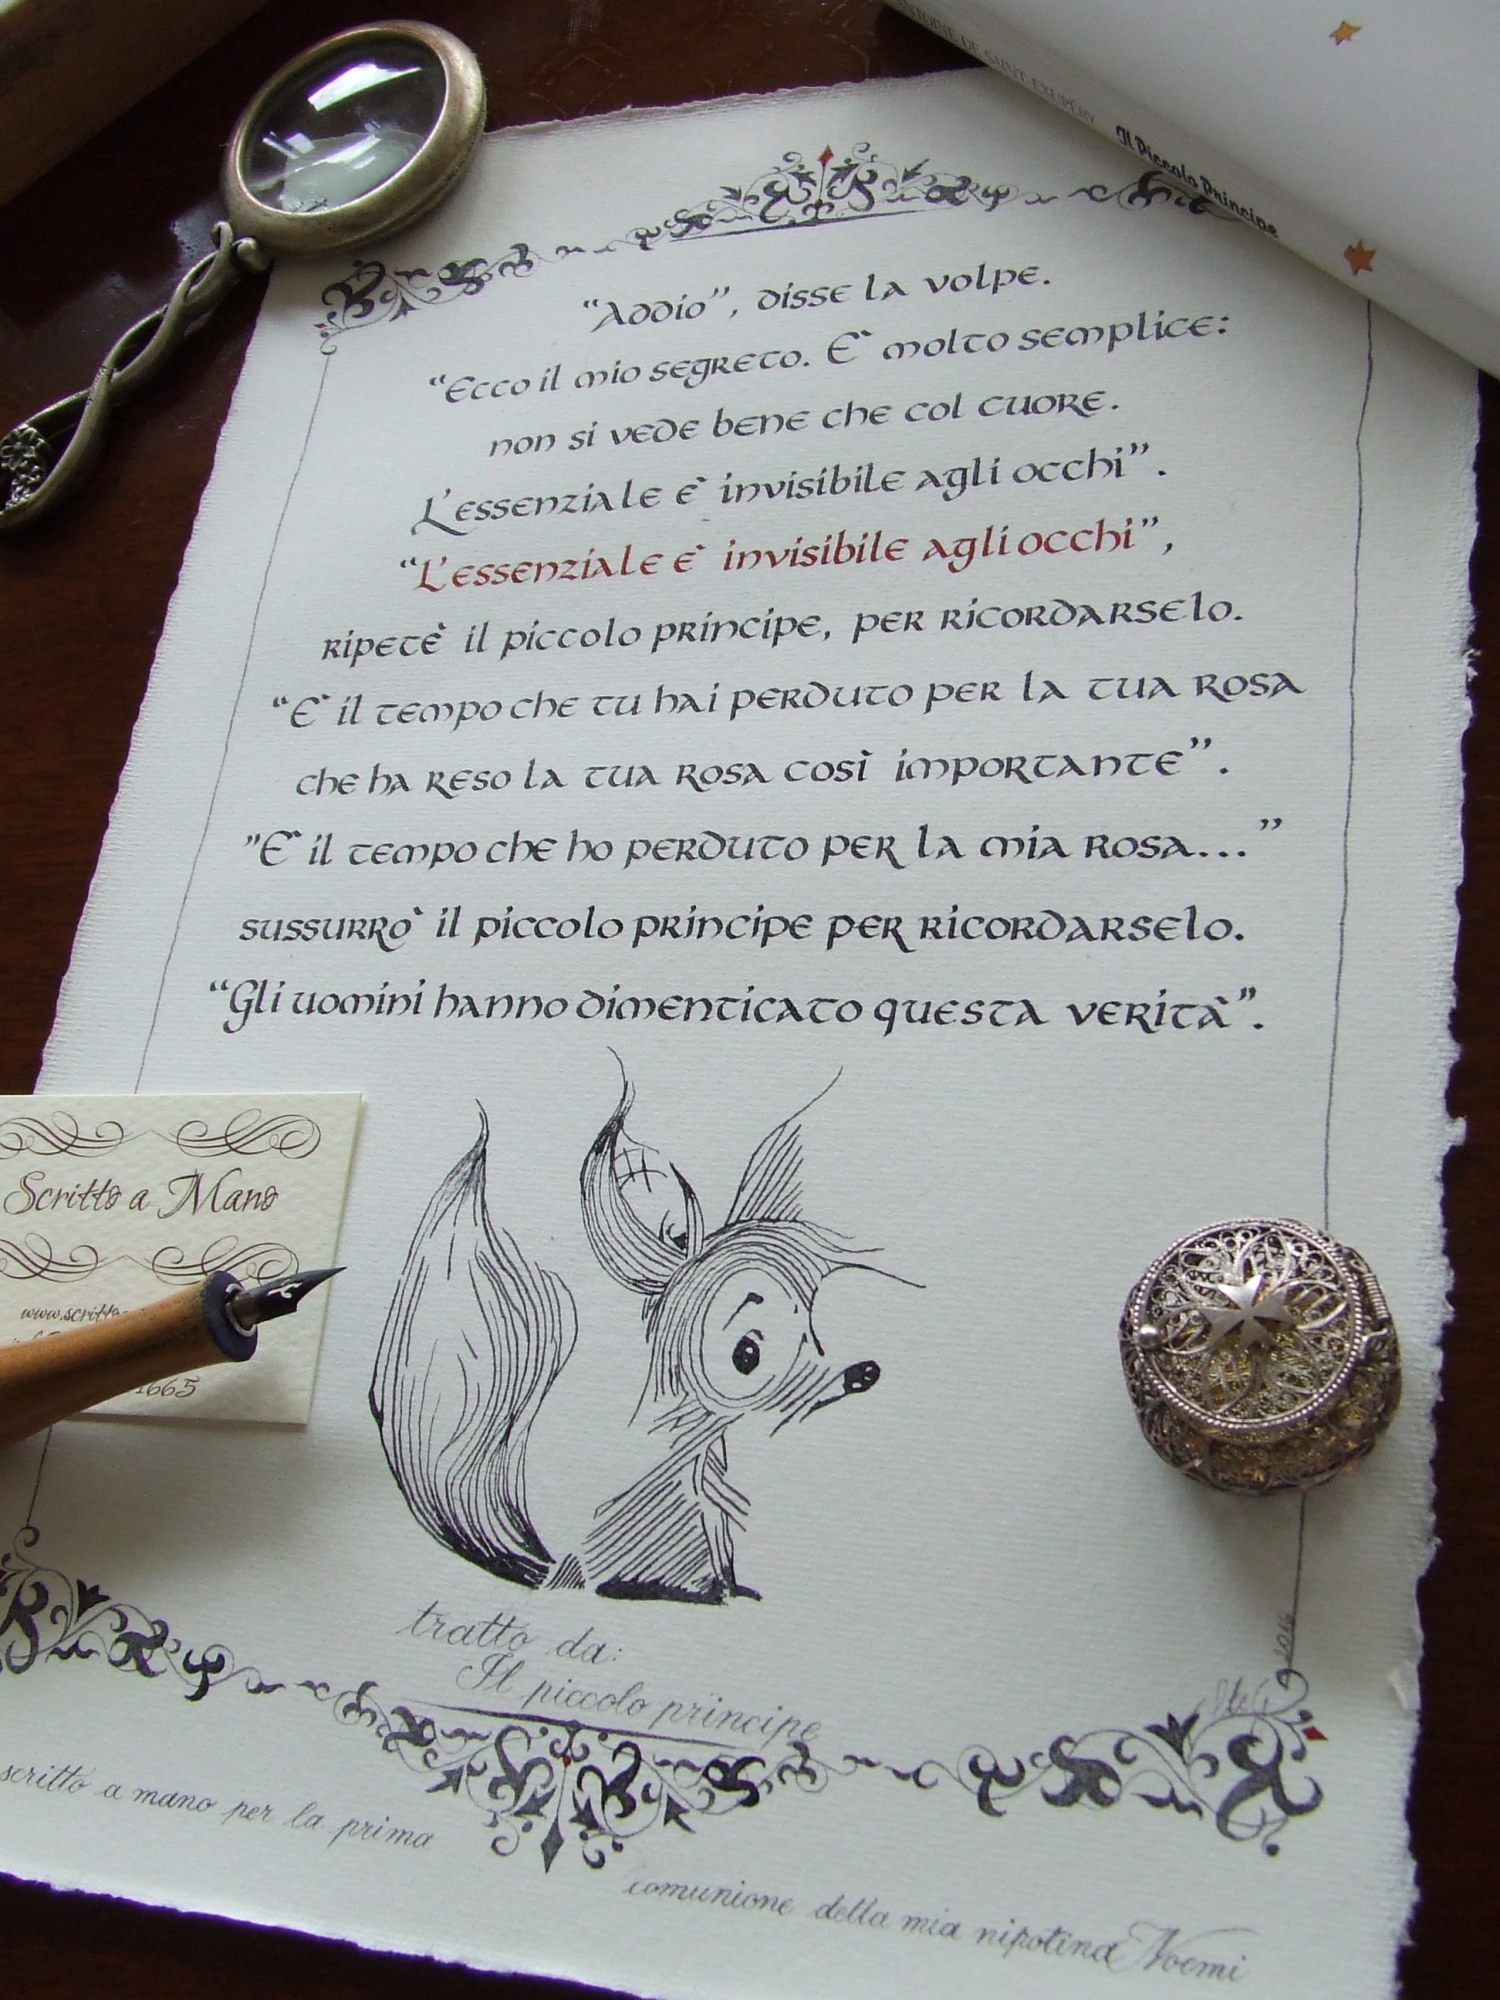 ANTOINE DE SAINT-EXUPÉRY Il Piccolo Principe
“Addio”, disse la volpe.
“Ecco il mio segreto. E` molto semplice:
non si vede bene che col cuore.
L'essenziale e` invisibile agli occhi”.
“L'essenziale e` invisibile agli occhi”,
ripetè il piccolo principe, per ricordarselo.
“E` il tempo che tu hai perduto per la tua rosa
che ha reso la tua rosa così importante”.
"E` il tempo che ho perduto per la mia rosa...”
sussurrò il piccolo principe per ricordarselo.
“Gli uomini hanno dimenticato questa verità”.
Scritto a Mano
www.scritto
1665
tratto da:
Il piccolo principe
2016
scritto a mano per la prima
comunione della mia nipotina Noemi